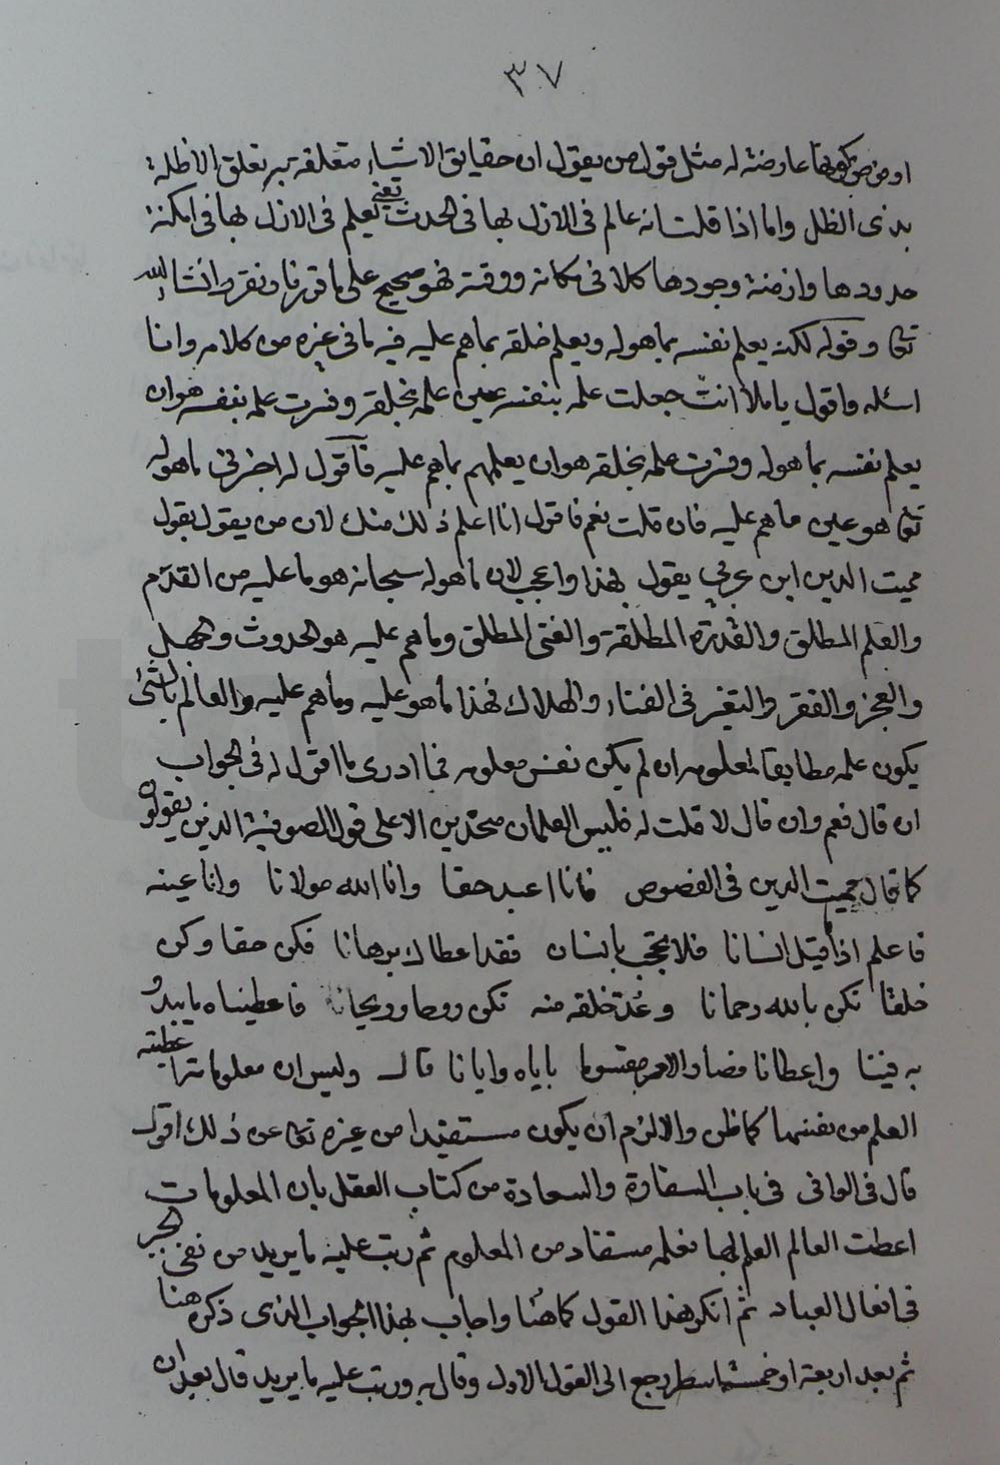 ٣٧
عارضة له مثل قول من يقول ان حقايق الاشياء متعلقة به تعلق الاظلة
بذى الظل واما اذا قلت انه عالم فى الازل بها فى الحدث يعنى يعلم فى الازل بها فى امكنة
حدودها وازمنة وجودها كلا فى مكانه ووقته فهو صحيح على ما قررنا ونقرر انشاء الله
تعا وقوله لكنه يعلم نفسه بما هو له ويعلم خلقه بما هم عليه فيه ما فى غيره من كلامه وانا
اسئله واقول يا ملا انت جعلت علمه بنفسه عين علمه بخلقه وفسرت علمه بنفسه هو ان
يعلم نفسه بما هو له وفسرت علمه بخلقه هو ان يعلمهم بما هم عليه فاقول له اخبرنى ما هو له
تعا هو عين ما هم عليه فان قلت نعم فاقول انا اعلم ذلك منك لان من يقول بقول
مميت الدين ابن عربي يقول بهذا واعجب لان ما هو له سبحانه هو ما عليه من القدم
والعلم المطلق والقدرة المطلقة والغنى المطلق وما هم عليه هو الحدوث والجهل
والعجز والفقر والتغير فى الفناء والهلاك فهذا ما هو عليه وما هم عليه والعالم بالشئ
يكون علمه مطابقا لمعلومه ان لم يكن نفس معلومه فما ادرى ما اقول له فى الجواب
ان قال نعم وان قال لا قلت له فليس العلمان متحدين الا على قول الصوفية الذين يقولون
كما قال مميت الدين فى الفصوص فانا اعبد حقا وانا الله مولانا وانا عينه
فاعلم اذا قيل انسانا فلا تحجب بانسان فقد اعطاك برهانا فكن حقا وكن
خلقا تكن بالله رحمانا وغذ خلقه منه تكن روحا وريحانا فاعطيناه ما يبدو
به فينا واعطانا فصار الامر مقسوما باياه وايانا قال وليس ان معلوماته اعطته
العلم من نفسها كما ظن والا لزم ان يكون مستفيدا من غيره تعا عن ذلك اقول
قال فى الوافى فى باب السعادة من كتاب العقل بان المعلومات
اعطت العالم العلم بها فعلمه مستفاد من المعلوم ثم رتب عليه ما يريد من نفى الجبر
فى افعال العباد ثم انكر هذا القول كما هنا واجاب بهذا الجواب الذى ذكره هنا
ثم بعد اربعة او خمسة اسطر رجع الى القول الاول وقال به ورتب عليه ما يريد قال بعد ان